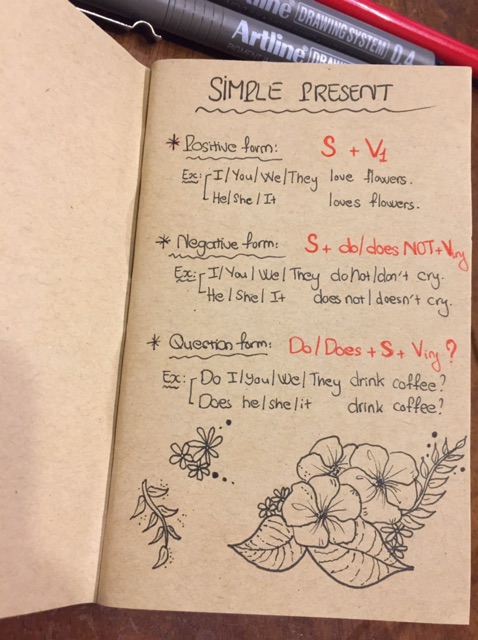 Artline DRAWING SYSTEM
Artline DRAWING SYSTEM 0.4
SIMPLE PRESENT
* Positive form: S + V1
Ex: I/You/We/They love flowers.
He/She/It loves flowers.
* Negative form: S + do/does NOT + Ving
Ex: I/You/We/They do not/don't cry.
He/She/It does not/doesn't cry.
* Question form: Do/Does + S + Ving ?
Ex: Do I/you/We/They drink coffee?
Does he/she/it drink coffee?